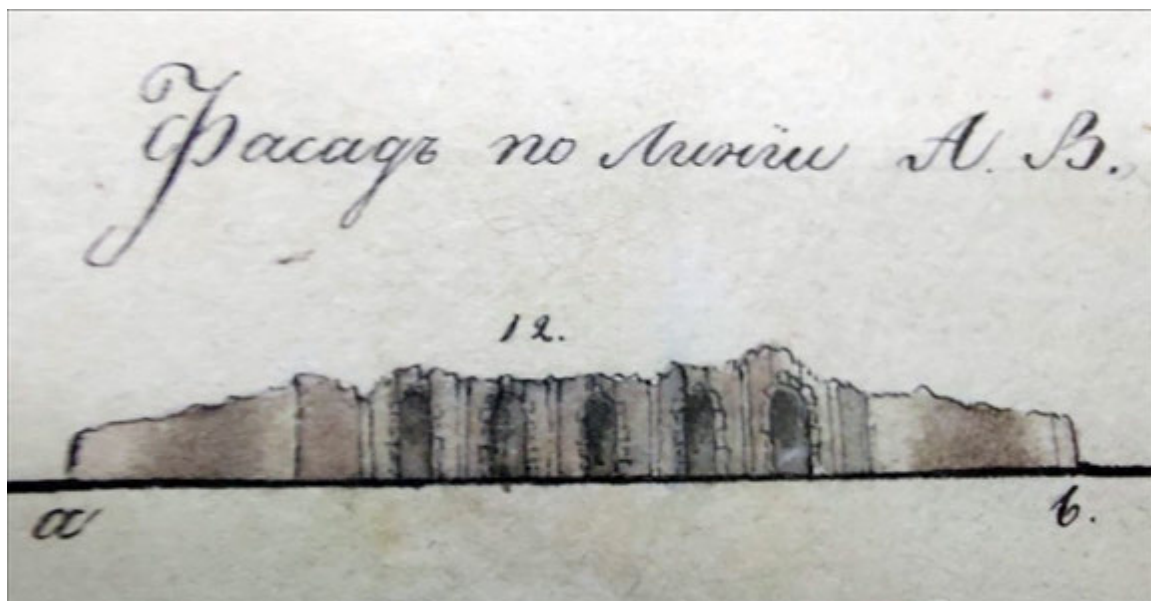 Фасадъ по Линіи А. В.
12.
a b.